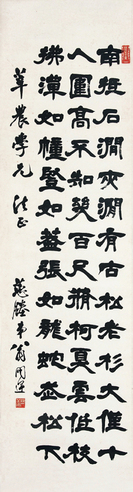 南抵石澗夾澗有古松老杉大僅十
人圍高不知幾百尺脩柯戛雲低枝
拂潭如幢豎如蓋張如龍蛇走松下
農學兄法正
弟翁闓運